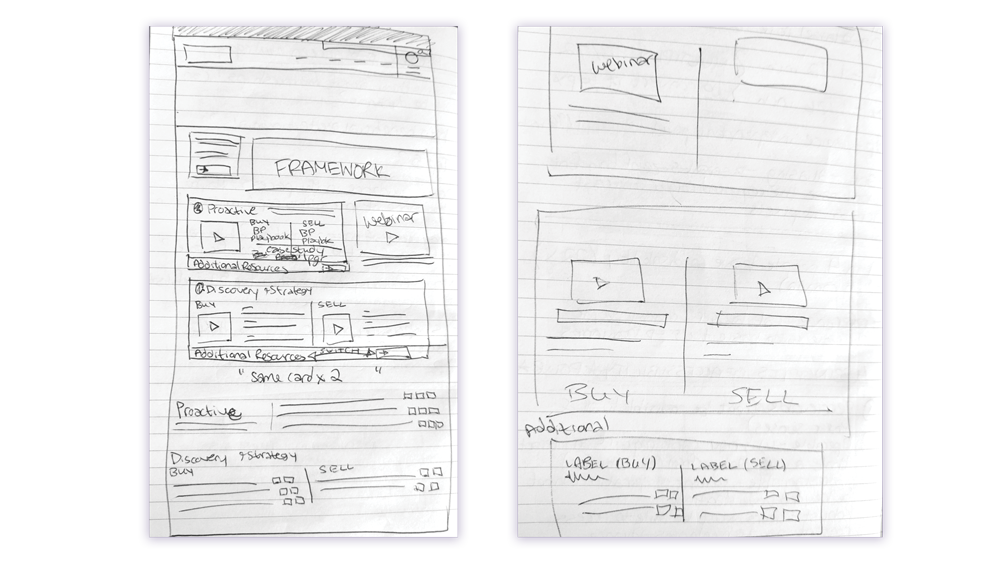 FRAMEWORK
Proactive
BUY
BP
Playbook
SELL
BP
Playbook
Case Study
Additional Resources
Webinar
Discovery & Strategy
BUY
SELL
Additional Resources
SWITCH
"Same card x 2 "
Proactive
Discovery & Strategy
BUY
SELL
Webinar
BUY
SELL
Additional
LABEL (BUY)
LABEL (SELL)